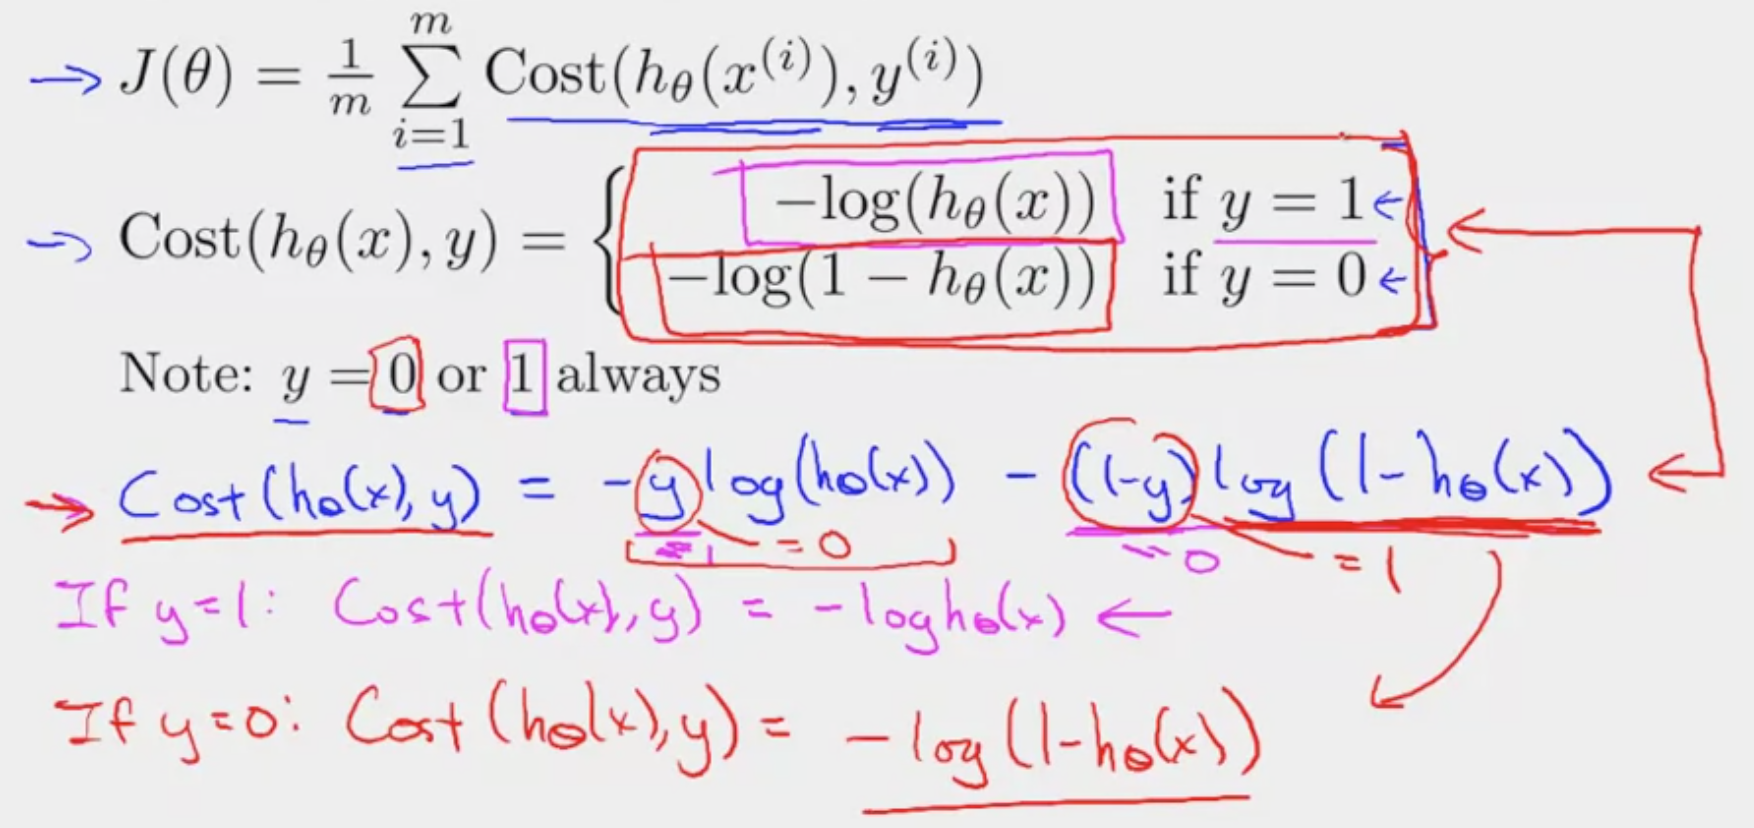 → J(θ) = 1/m ∑_{i=1}^{m} Cost(h_θ(x^(i)), y^(i))
→ Cost(h_θ(x), y) = { −log(h_θ(x)) if y = 1 ←
−log(1 − h_θ(x)) if y = 0 ←
Note: y = 0 or 1 always
→ Cost(h_θ(x), y) = -y log(h_θ(x)) - (1-y) log(1-h_θ(x)) ←
=1 = 0 =0 = 1
If y=1: Cost(h_θ(x), y) = - log h_θ(x) ←
If y=0: Cost(h_θ(x), y) = - log(1-h_θ(x))